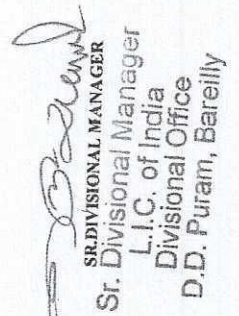 SR.DIVISIONAL MANAGER
Sr. Divisional Manager
L.I.C. of India
Divisional Office
D.D. Puram, Bareilly